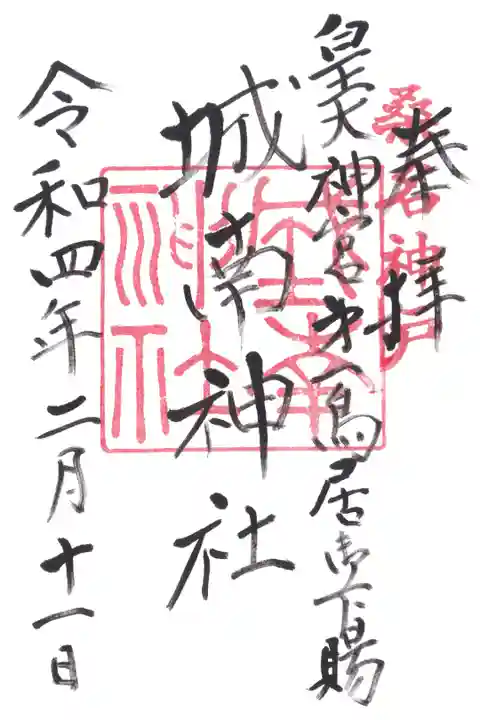 奉拝
桑名神戸
皇大神宮第一鳥居御下賜
城南神社
令和四年二月十一日